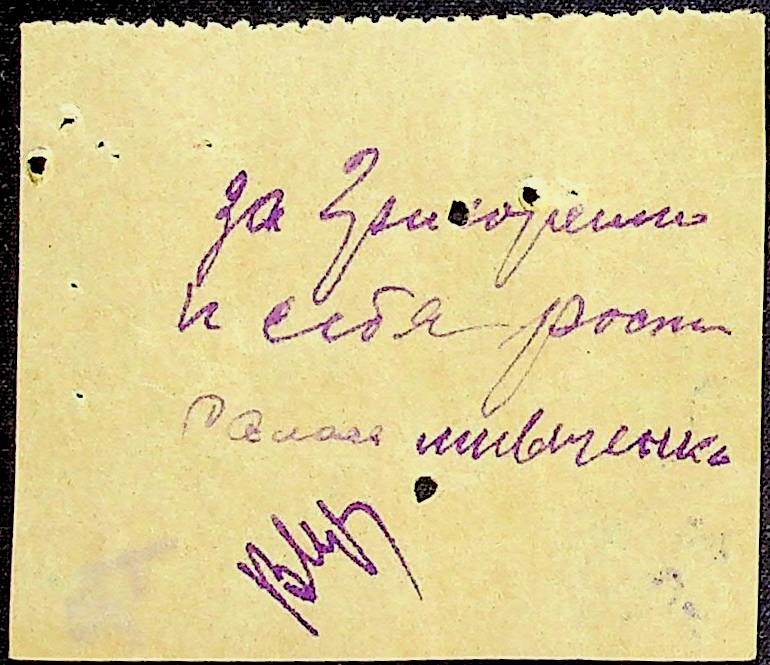 за Григоренко
и себя роспи
сался шивченко